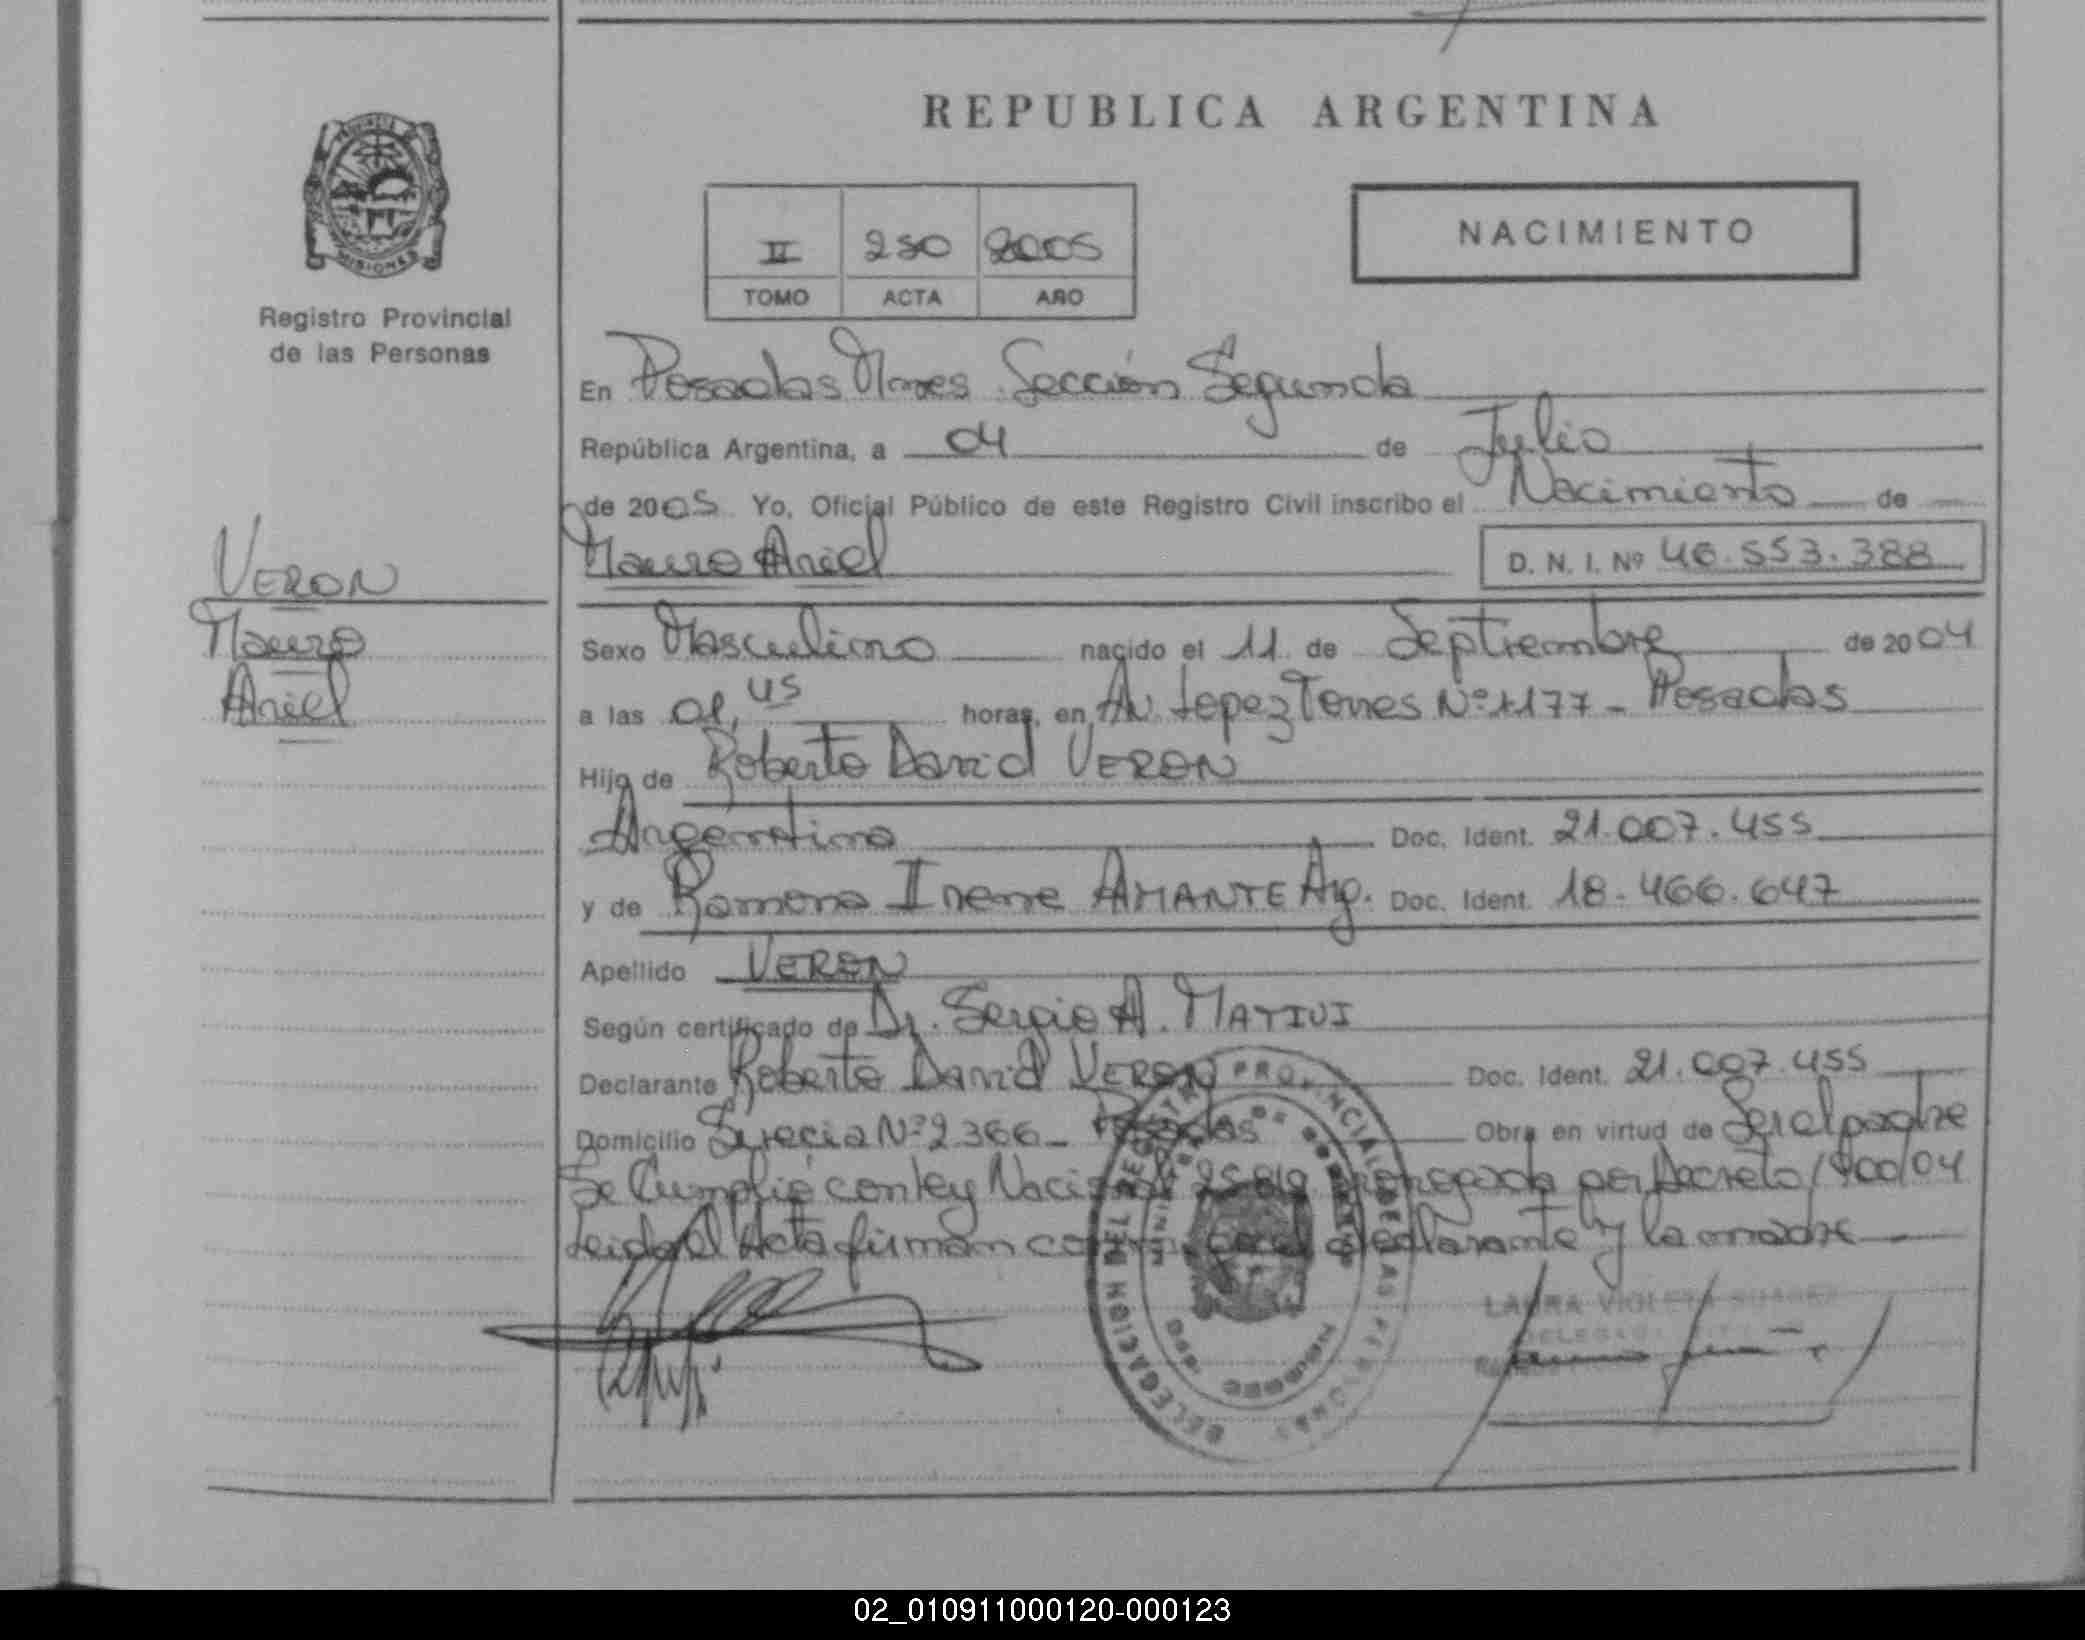 REPUBLICA ARGENTINA
PROVINCIA
MISIONES
Registro Provincial
de las Personas
II 250 2005
TOMO ACTA AÑO
NACIMIENTO
En Posadas Mnes. Sección Segunda
República Argentina, a 04 de Julio
de 2005 Yo, Oficial Público de este Registro Civil inscribo el Nacimiento de
Mauro Ariel D. N. I. Nº 46.553.388
VERON
Mauro
Ariel
Sexo Masculino nacido el 11 de Septiembre de 2004
a las 01,45 horas, en Av. Lopez Torres Nº 1177 - Posadas
Hijo de Roberto David VERON
Argentino Doc. Ident. 21.007.455
y de Ramona Irene AMANTE Arg. Doc. Ident. 18.466.647
Apellido VERON
Según certificado de Dr. Sergio A. MATIVI
Declarante Roberto David VERON Doc. Ident. 21.007.455
Domicilio Suecia Nº 2366 - Posadas Obra en virtud de Ser el padre
Se Cumplió con ley Nacional 25.819 prorogada por Decreto 1900/04
Leida el Acta firman conmigo el declarante y la madre
DELEGACION DEL REGISTRO PROVINCIAL DE LAS PERSONAS
LAURA VIOLETA SUAREZ
02_010911000120-000123